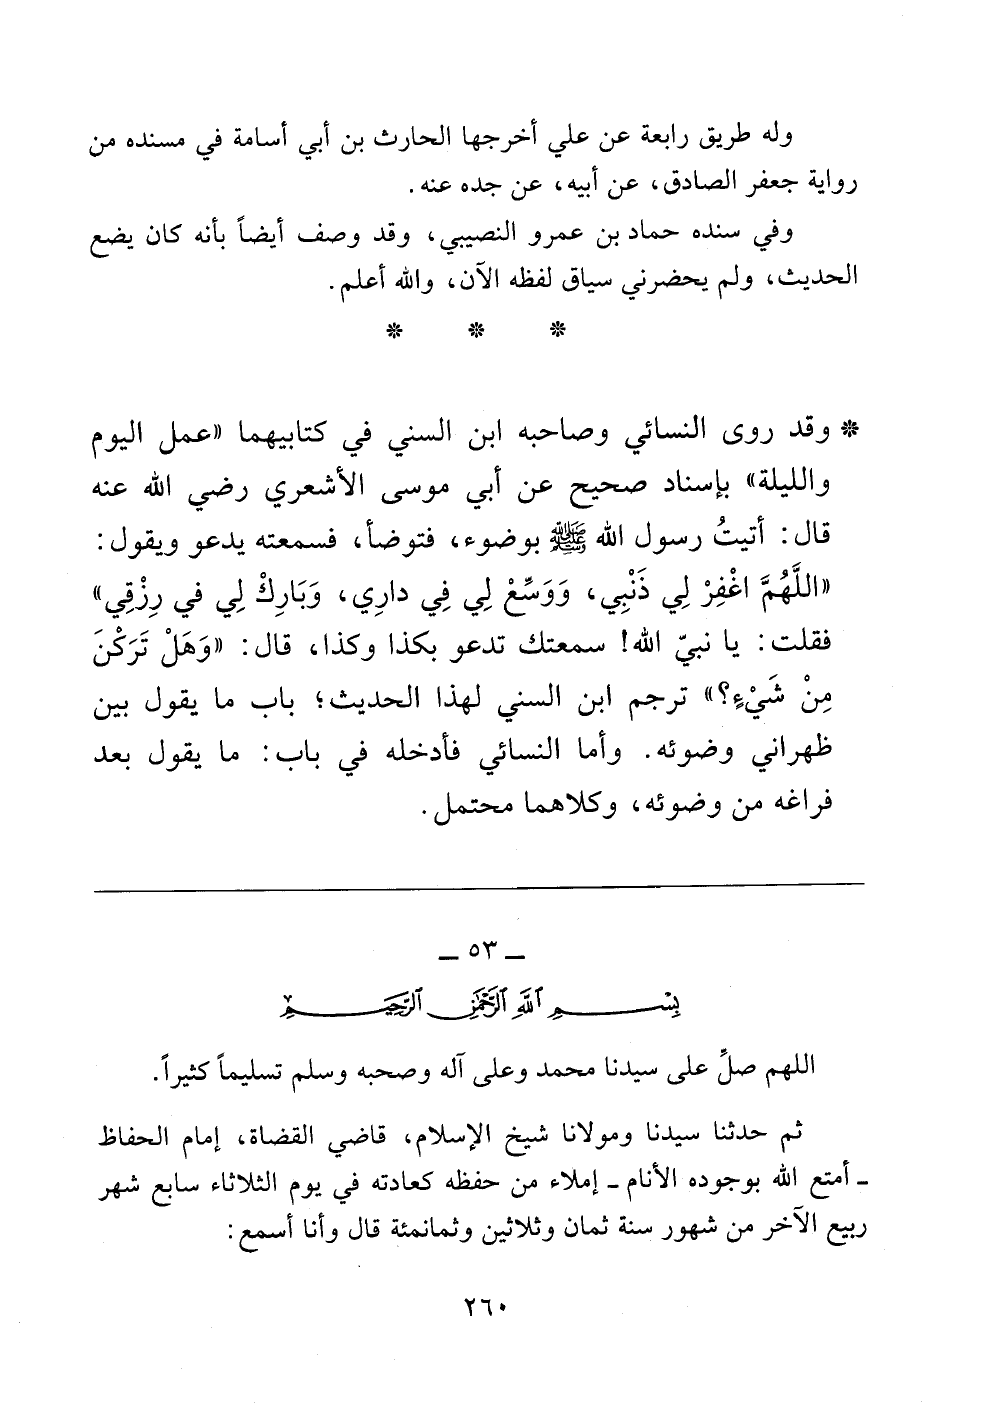 وله طريق رابعة عن علي أخرجها الحارث بن أبي أسامة في مسنده من
رواية جعفر الصادق، عن أبيه، عن جده عنه.
وفي سنده حماد بن عمرو النصيبي، وقد وصف أيضاً بأنه كان يضع
الحديث، ولم يحضرني سياق لفظه الآن، والله أعلم.
* * *
* وقد روى النسائي وصاحبه ابن السني في كتابيهما «عمل اليوم
والليلة» بإسناد صحيح عن أبي موسى الأشعري رضي الله عنه
قال: أتيتُ رسول الله ﷺ بوضوء، فتوضأ، فسمعته يدعو ويقول:
«اللَّهُمَّ اغْفِرْ لِي ذَنْبِي، وَوَسِّعْ لِي فِي دارِي، وَبَارِكْ لِي في رِزْقِي»
فقلت: يا نبيّ الله! سمعتك تدعو بكذا وكذا، قال: «وَهَلْ تَرَكْنَ
مِنْ شَيْءٍ؟» ترجم ابن السني لهذا الحديث؛ باب ما يقول بين
ظهراني وضوئه. وأما النسائي فأدخله في باب: ما يقول بعد
فراغه من وضوئه، وكلاهما محتمل.
ـ ٥٣ ـ
بِسْمِ ٱللَّهِ ٱلرَّحْمَٰنِ ٱلرَّحِيمِ
اللهم صلِّ على سيدنا محمد وعلى آله وصحبه وسلم تسليماً كثيراً.
ثم حدثنا سيدنا ومولانا شيخ الإسلام، قاضي القضاة، إمام الحفاظ
ـ أمتع الله بوجوده الأنام ـ إملاء من حفظه كعادته في يوم الثلاثاء سابع شهر
ربيع الآخر من شهور سنة ثمان وثلاثين وثمانمئة قال وأنا أسمع:
٢٦٠